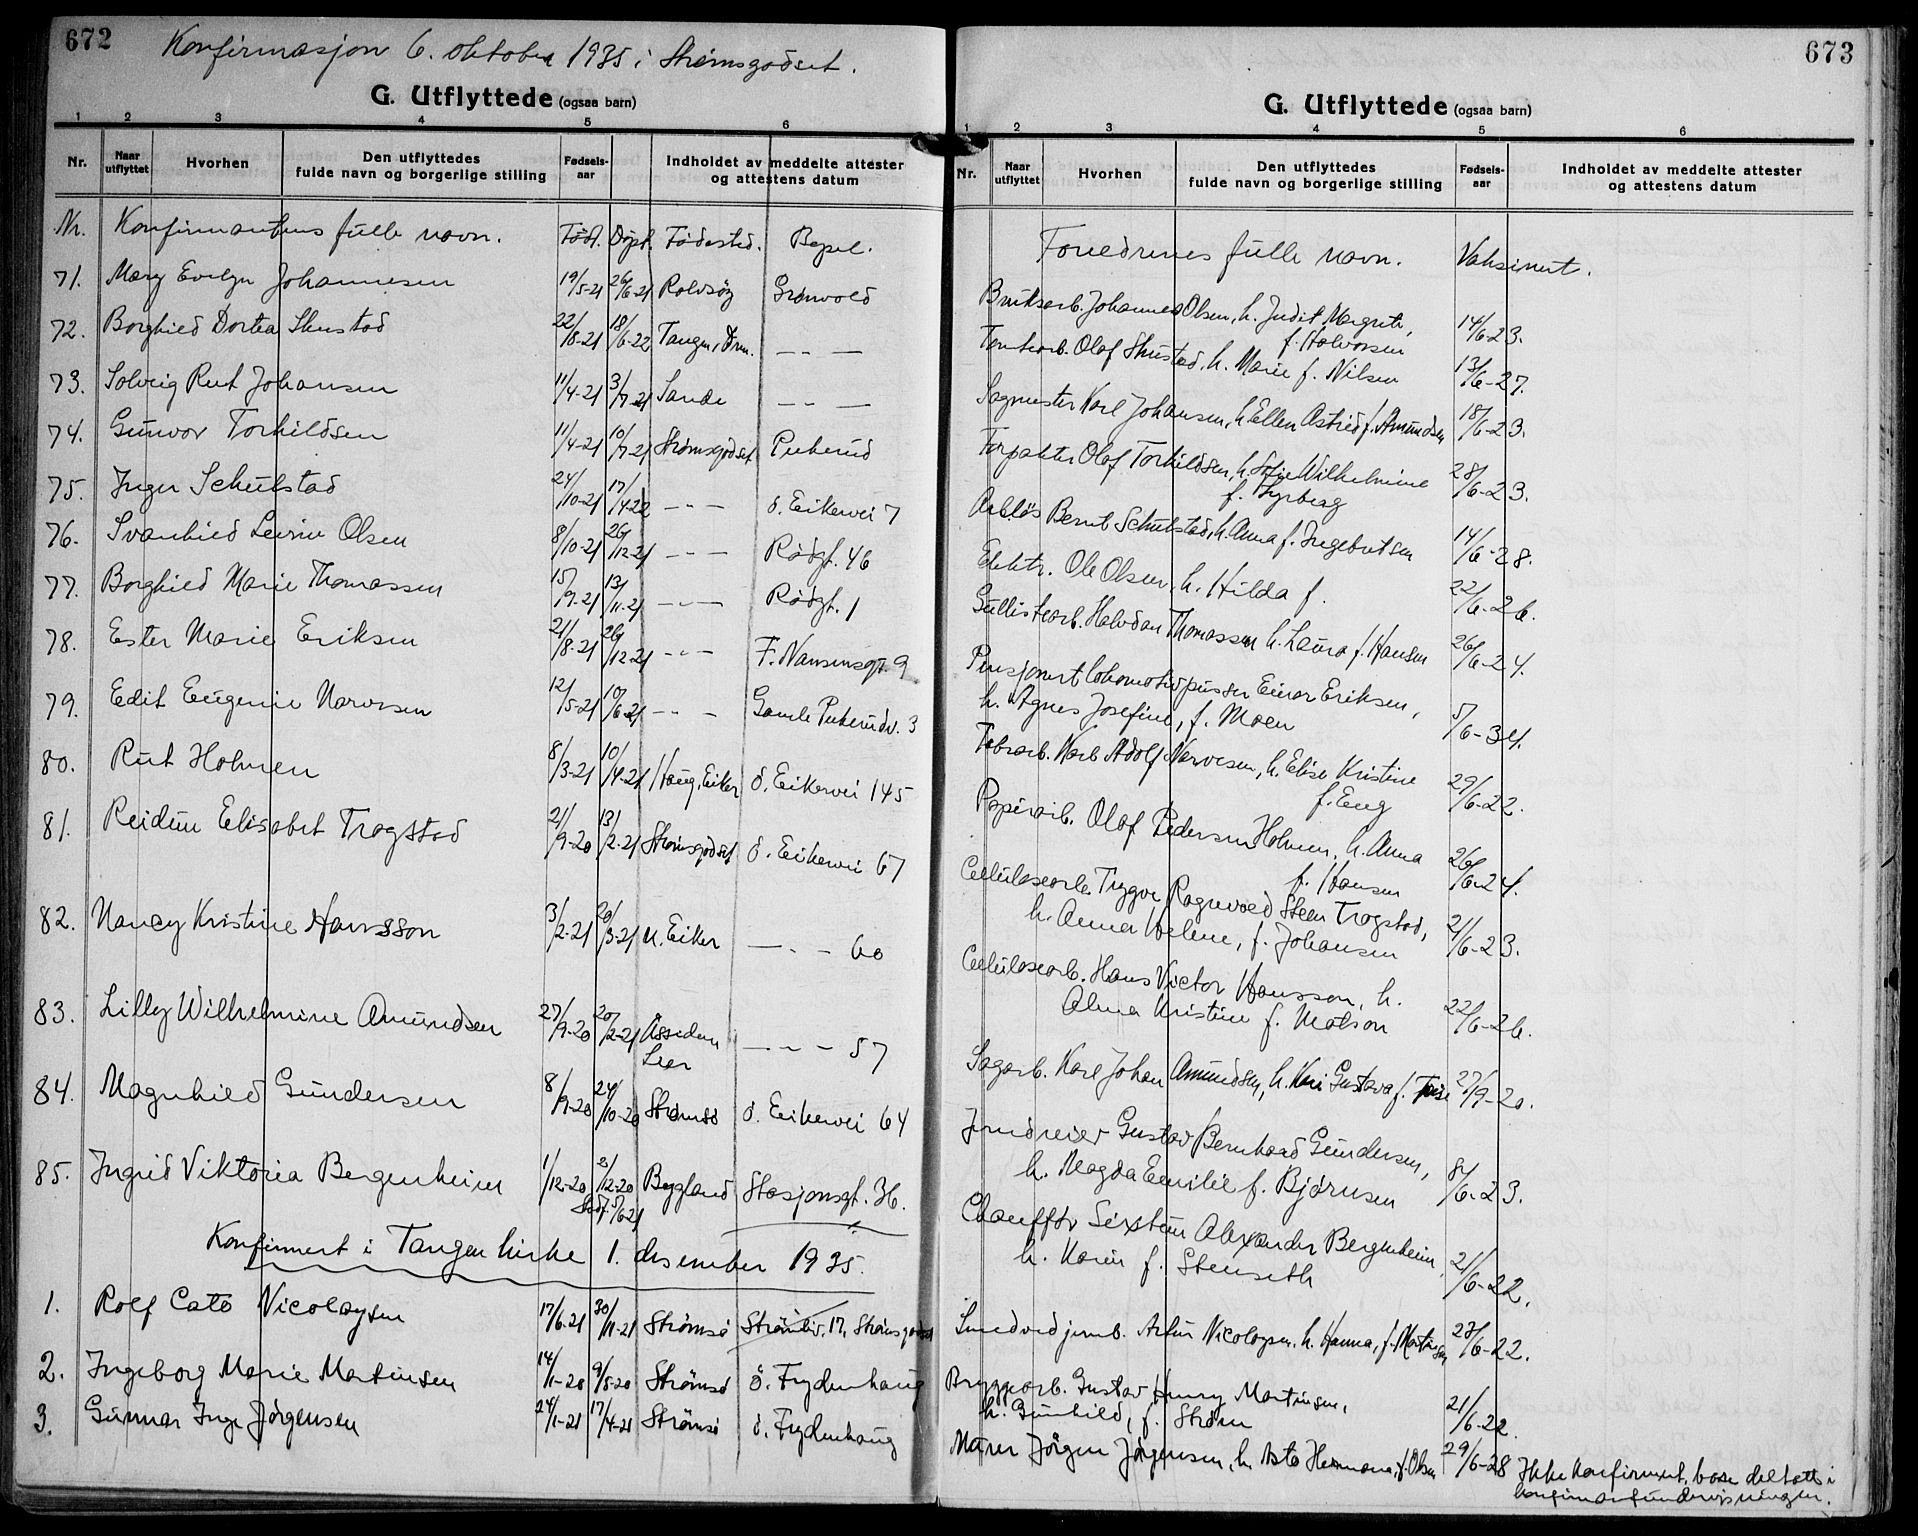 672
Konfirmasjon 6. oktober 1935 i Strømsgodset.
G. Utflyttede (ogsaa barn)
1 2 3 4 5 6
Nr. Naar utflyttet Hvorhen Den utflyttedes fulde navn og borgerlige stilling Fødsels-aar Indholdet av meddelte attester og attestens datum
Nr. Konfirmantens fulle navn. Født. Døpt. Fødested. Bopel.
71. Mary Evelyn Johannesen 19/5-21 26/6-21 Rolvsøy Grønvold
72. Borghild Dortea Skustad 22/8-21 18/6-22 Tangen, Drm. — — —
73. Solveig Rut Johansen 11/4-21 3/7-21 Sande — — —
74. Gunvor Torkildsen 11/4-21 10/7-21 Strømsgodset Pukerud
75. Inger Schulstad 24/10-21 17/4-22 - - - ø. Eikervei 7
76. Svanhild Levine Olsen 8/10-21 26/12-21 - - - Rødgt. 46
77. Borghild Marie Thomassen 15/9-21 13/11-21 - - - Rødgt. 1
78. Ester Marie Eriksen 21/8-21 26/12-21 - - - F. Nansensgt. 9
79. Edit Eugenie Narvesen 12/5-21 10/6-21 - - - Gamle Pukerudv. 3
80. Rut Holmen 8/3-21 10/4-21 Haug, Eiker ø. Eikervei 145
81. Reidun Elisabet Trogstad 21/9-20 13/2-21 Strømsgodset ø. Eikervei 67
82. Nancy Kristine Hansson 3/2-21 20/3-21 N. Eiker — - - 60
83. Lilly Wilhelmine Amundsen 27/9-20 20/2-21 Åssiden — - - 57
Lier
84. Magnhild Gundersen 8/9-20 24/10-20 Strømsø ø. Eikervei 64
85. Ingrid Viktoria Bergenheim 1/12-20 /12-20 Bygland Stasjonsgt. 36.
5/6-21
Konfirmert i Tangen kirke 1. desember 1935.
1. Rolf Cato Nicolaysen 17/6-21 30/11-21 Strømsø 17, Strømsgodset
2. Ingeborg Marie Martinsen 14/1-20 9/5-20 Strømsø ø. Frydenhaug
3. Gunnar Inge Jørgensen 24/1-21 17/4-21 Strømsø ø. Frydenhaug
673
G. Utflyttede (ogsaa barn)
1 2 3 4 5 6
Nr. Naar utflyttet Hvorhen Den utflyttedes fulde navn og borgerlige stilling Fødsels-aar Indholdet av meddelte attester og attestens datum
Foreldrenes fulle navn. Vaksinert.
Bruksarb. Johannes Olsen, h. Judit Margrete,
f. Halvorsen 14/6-23.
Tomtearb. Olaf Skustad, h. Marie f. Nilsen 13/6-27.
Sagmester Karl Johansen, h. Ellen Astrid f. Amundsen 18/6-23.
Forpakter Olaf Torkildsen, h. Sofie Wilhelmine
f. Fyrberg 28/6-23.
Arb.løs Bernt Schulstad, h. Anna f. Ingebretsen 14/6-28.
Elektr. Ole Olsen, h. Hilda f. 22/6-26.
Gullistearb. Halvdan Thomassen h. Laura f. Hansen 26/6-24.
Pensjonert lokomotivpusser Einar Eriksen,
h. Agnes Josefine, f. Moen 5/6-34.
Fabrarb. Karl Adolf Narvesen, h. Elise Kristine
f. Eng 29/6-22.
Papirarb. Olaf Pedersen Holmen, h. Anna
f. Hansen 26/6-24.
Cellulosearb. Trygve Ragnvald Steen Trogstad,
h. Anna Helene, f. Johansen 21/6-23.
Cellulosearb. Hans Victor Hansson, h.
Alma Kristine f. Matson 22/6-26.
Sagarb. Karl Johan Amundsen, h. Kari Gustava f. 27/9-20.
Gustav Bernhard Gundersen,
h. Magda Emilie f. Bjørnsen 8/6-23.
Chauffør Sixten Alexander Bergenheim,
h. Karin f. Stenseth 21/6-22.
Smed ved jernb. Artur Nicolaysen, h. Hanna, f. Martinsen 23/6-22.
Bryggearb. Gustav Henry Martinsen,
h. Gunhild, f. Strøm 21/6-22.
Murer Jørgen Jørgensen, h. Asta Hermana, f. Olsen 29/6-28 Ikke konfirmert, bare deltatt i
konfirmantundervisningen.